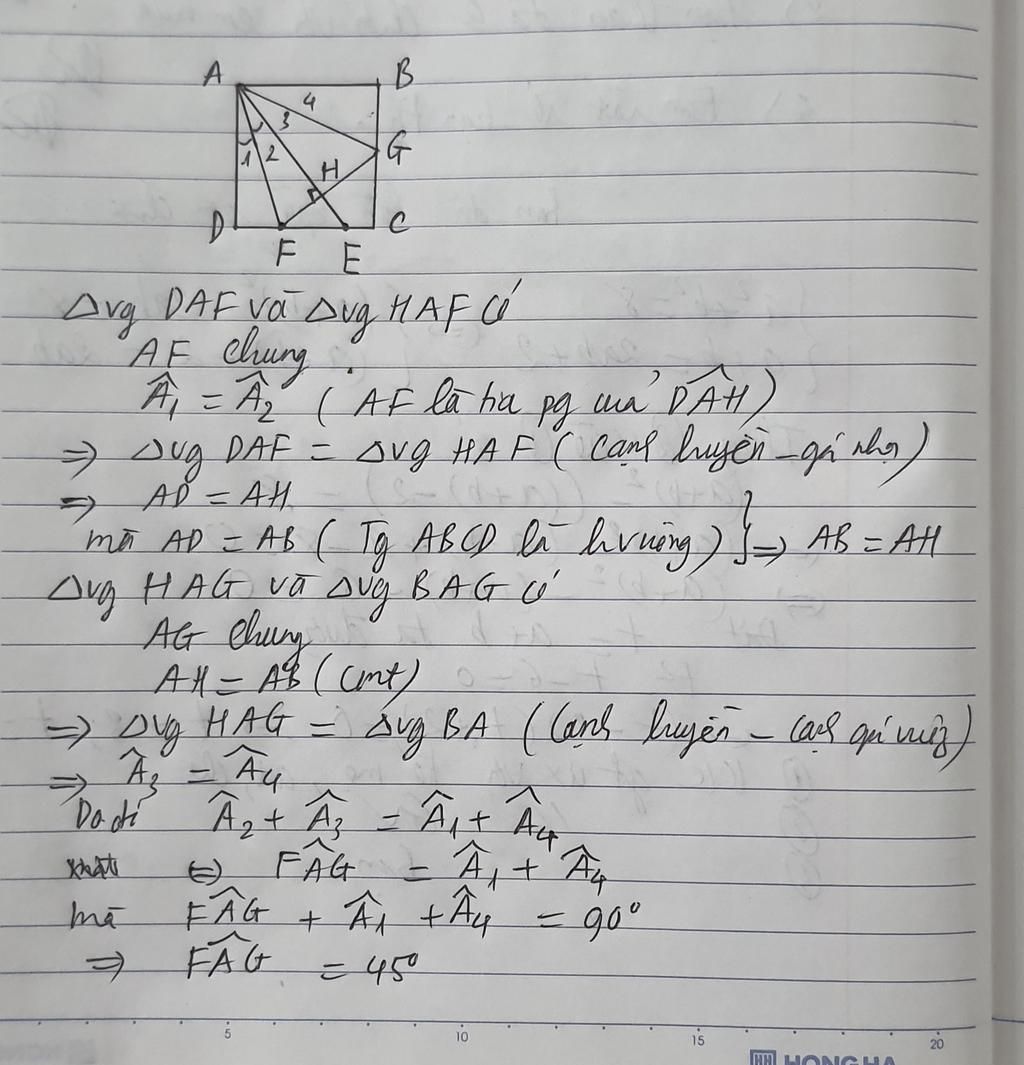 A B
4
3
1 2 H G
D F E C
Δvg DAF và Δvg HAF có
AF chung
Â₁ = Â₂ ( AF là tia pg của DÂH )
⇒ Δvg DAF = Δvg HAF ( cạnh huyền - góc nhọn )
⇒ AD = AH
mà AD = AB ( Tg ABCD là hvuông ) } ⇒ AB = AH
Δvg HAG và Δvg BAG có
AG chung
AH = AB ( cmt )
⇒ Δvg HAG = Δvg BA ( cạnh huyền - cạnh góc vuông )
⇒ Â₃ = Â₄
Do đó Â₂ + Â₃ = Â₁ + Â₄
⇔ FÂG = Â₁ + Â₄
mà FÂG + Â₁ + Â₄ = 90°
⇒ FÂG = 45°
5 10 15 20
HH HONG HA